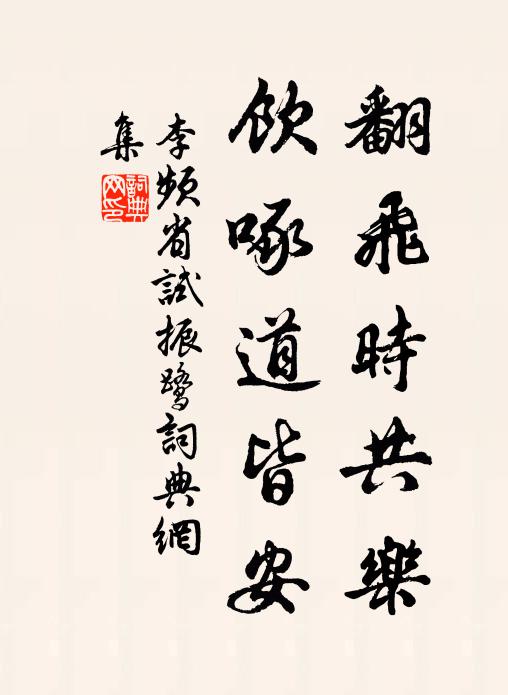 翻飛時共樂
飲啄道皆安
李頻省試振鷺詞典網
集
詞典
网印